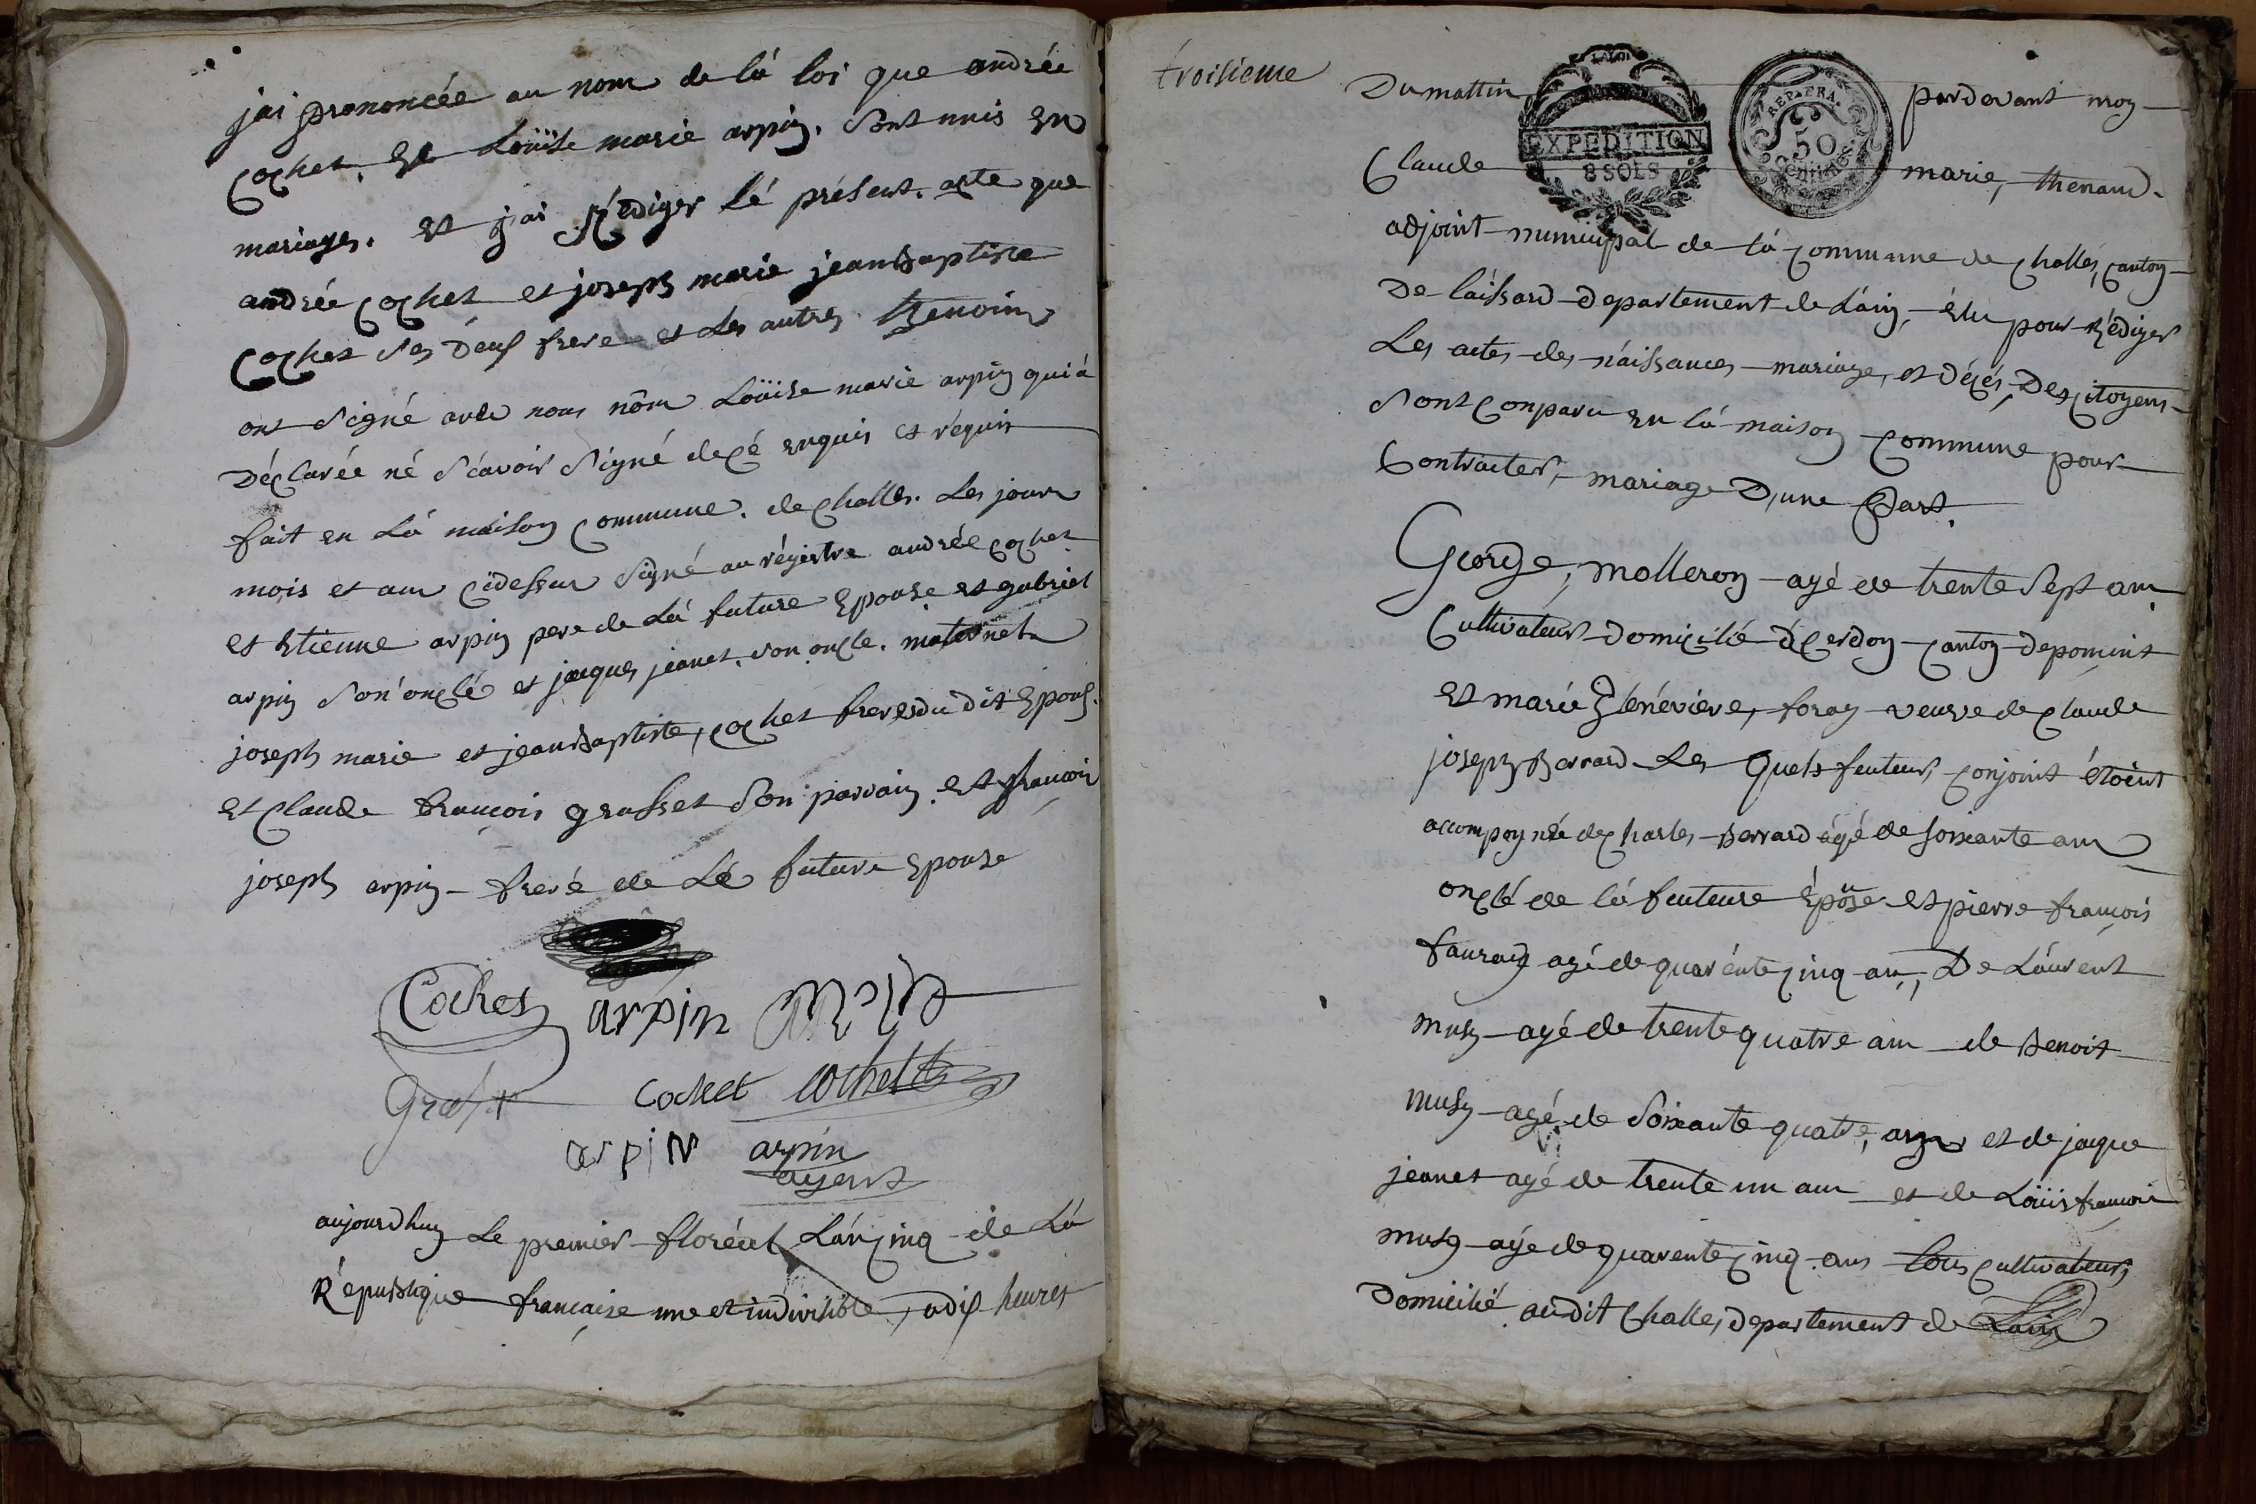 jai prononcée au nom de lá loi que andrée
cochet. Et Loüise marie arpin. sont unis en
mariages. et jai Rédiger lé présent. acte que
andrée cochet et joseph marie jean baptiste
cochet ses deux frere et les autres temoins
ont signé avec nous nôm Loüise marie arpin qui á
déclarée né sćavoir signé de cé enquis et réquis
fait en Lá maison commune. de challes. Les jours
mois et ans cidessus signé au régistre andrée cochet
et Etienne arpin pere de Lá future Epouse et gabriel
arpin son onclé et jacques jeanet. son oncle. maternel
joseph marie et jean baptiste, cochet freres du dit Epoux.
et Claude francois grasset son parrain. et francois
joseph arpin - freré de Lé future Epouse
Cochet arpin
cochet cochet
arpin arpin
agent
aujourdhuy Le premier floréal Lán cinq de Lá
République francaise une et indivisible, a dix heures
troisieme
Du mattin pardevant moy
EXPEDITION
8 SOLS
REP. FRA.
50
centimes
Claude marie, thenand.
adjoint municipal de lá commune de challes, canton
De laissard departement de Lain, élu pour Rédiger
Les actes des naissances mariage, et décés, Des citoyens
sont conparu en lá maison commune pour
Contracter, mariage D,une Part.
George, molleron agé de trente sept ans
Cultivateur domicilié á Cerdon canton de poncint
et marie Généviéve, foray veuve de claude
joseph Berrard Les Quels feuteurs conjoint étoient
accompagnée de charles Berrard ágé de soixante ans
onclé de lá feuteure Epouse et pierre francois
fauray agé de quarénte cinq ans, De Láurent
musy agé de trente quatre ans de Benoit
musy agé de soixante quatre, ans et de jaque
jeanet agé de trente un ans et de Loüis francois
musy agé de quarente cinq ans tous cultivateurs
Domicilié audit Challes, departement de Lain